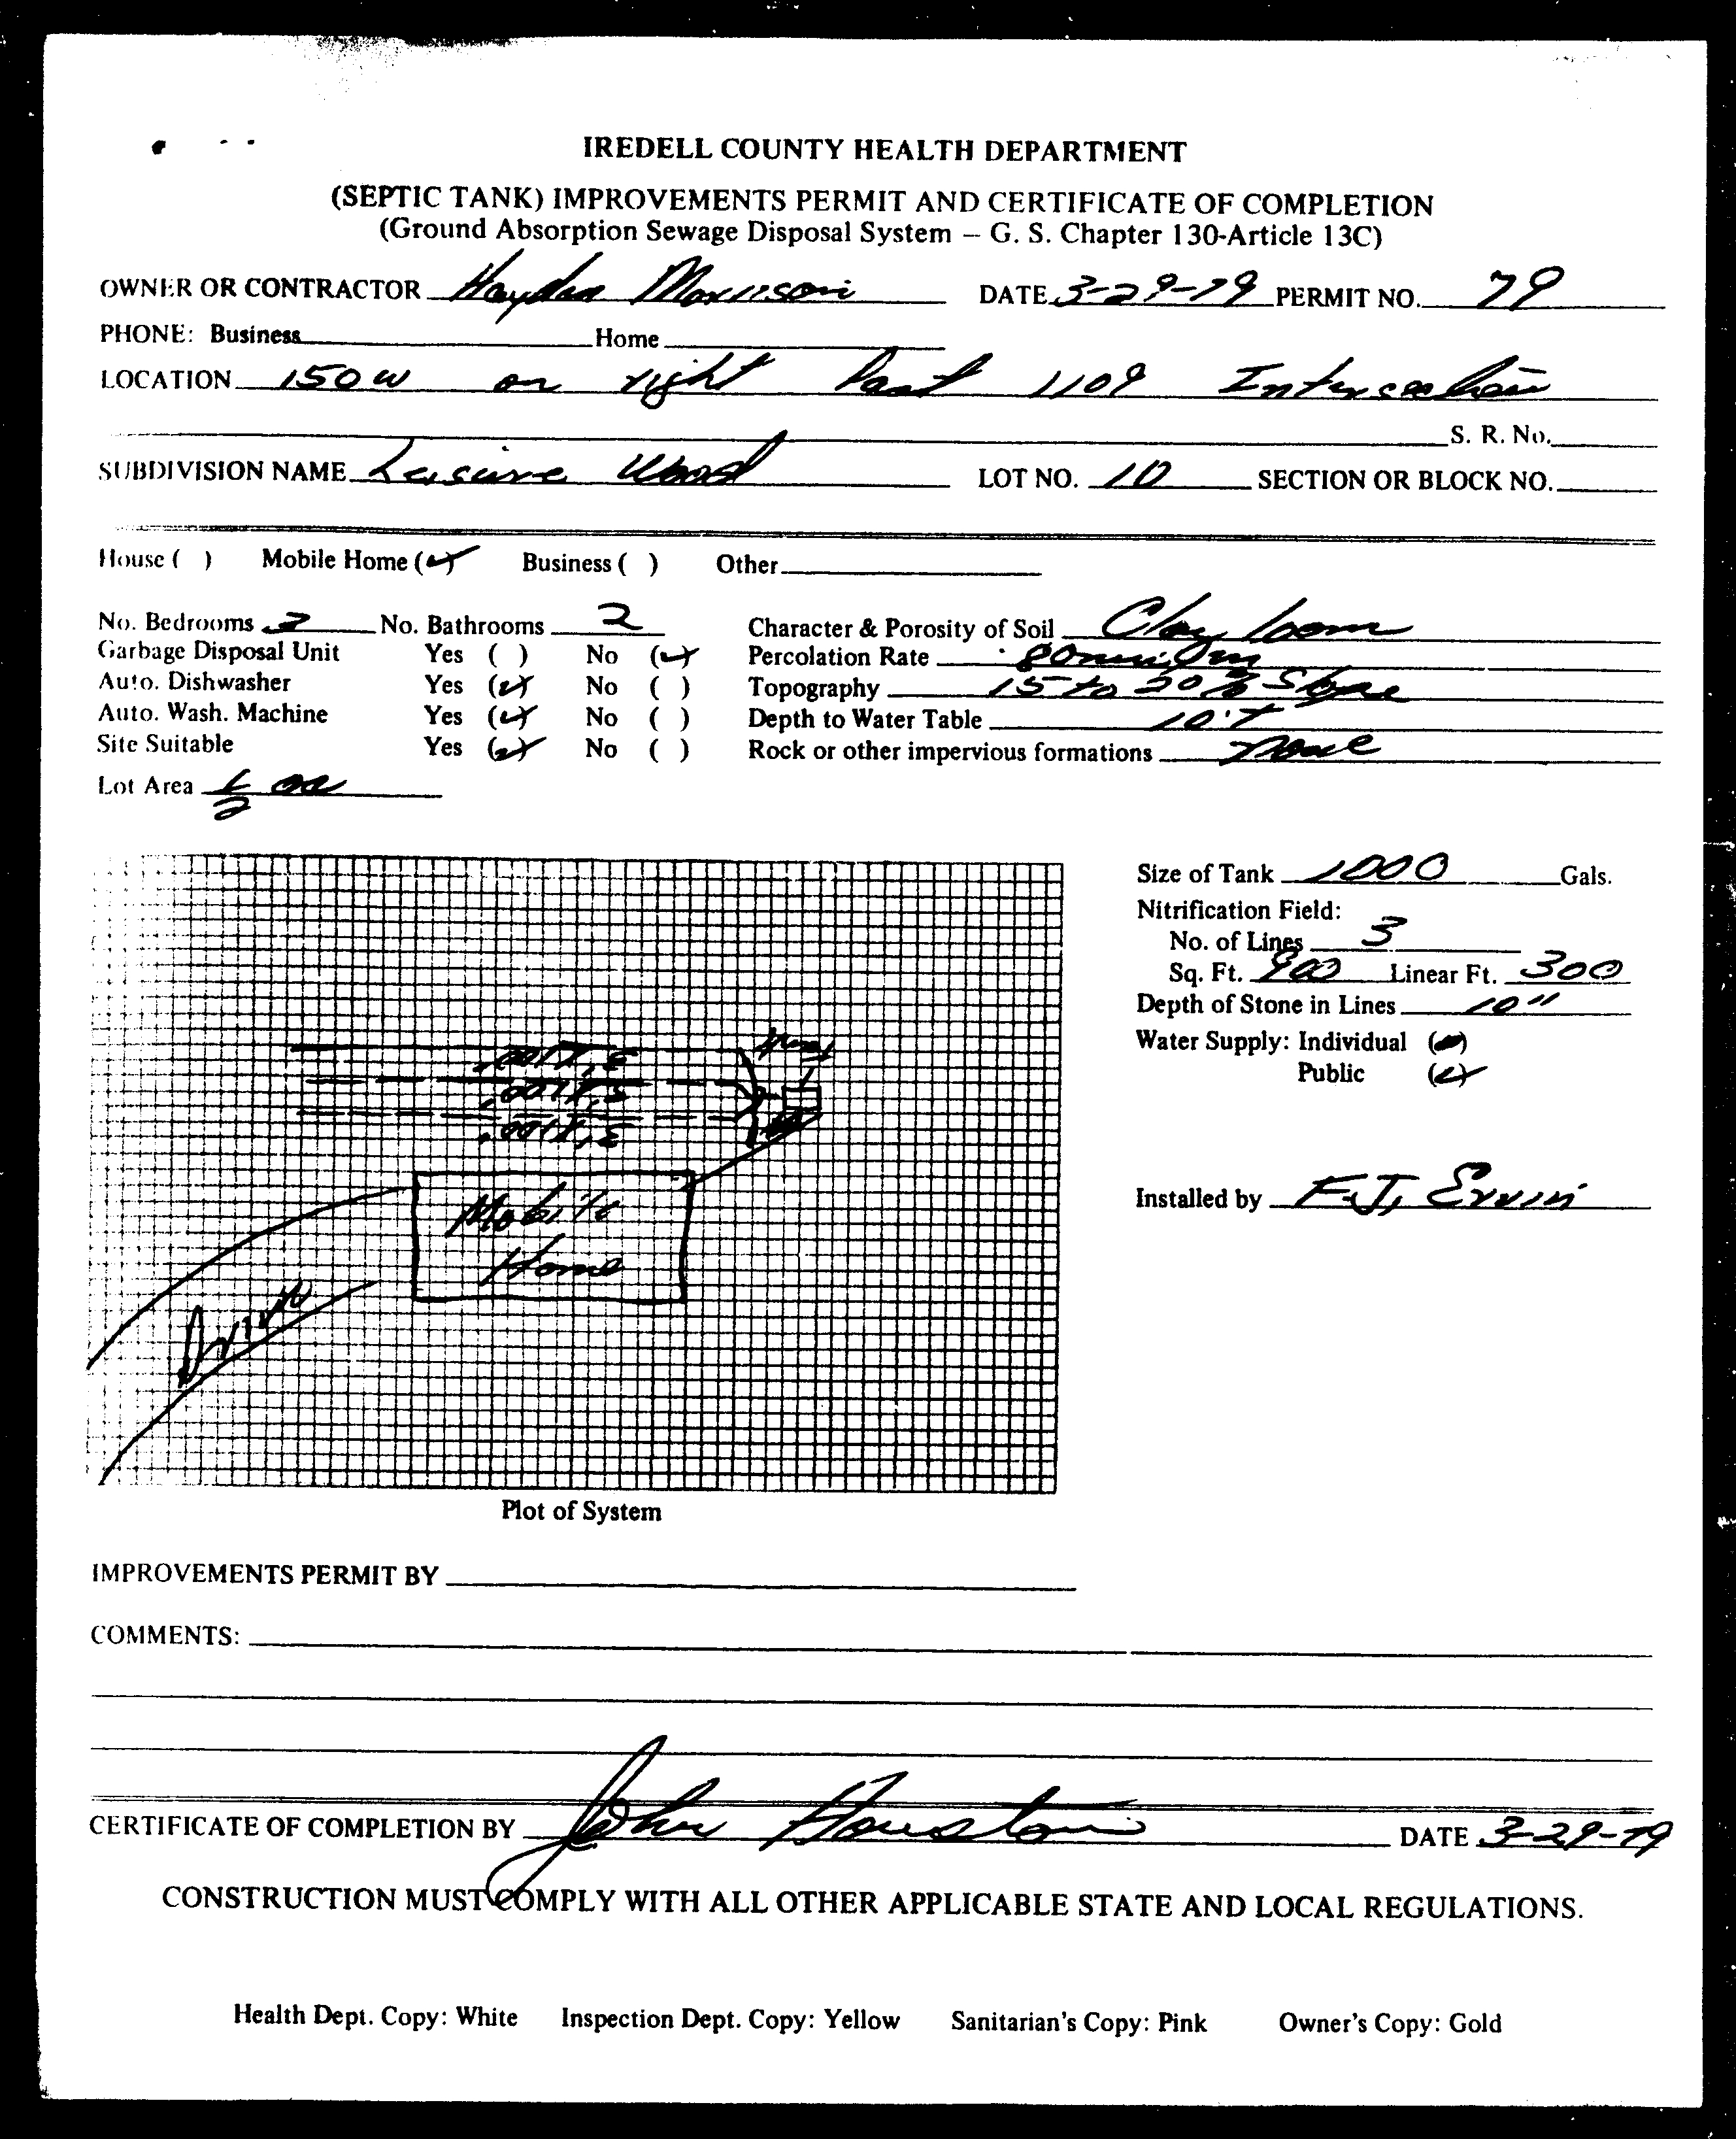 IREDELL COUNTY HEALTH DEPARTMENT
(SEPTIC TANK) IMPROVEMENTS PERMIT AND CERTIFICATE OF COMPLETION
(Ground Absorption Sewage Disposal System – G. S. Chapter 130-Article 13C)
OWNER OR CONTRACTOR Hayden Morrison DATE 3-29-79 PERMIT NO. 79
PHONE: Business Home
LOCATION 150 W on right Past 1109 Intersection
S. R. No.
SUBDIVISION NAME Leisure Wood LOT NO. 10 SECTION OR BLOCK NO.
House ( ) Mobile Home (✓) Business ( ) Other
No. Bedrooms 3 No. Bathrooms 2 Character & Porosity of Soil Clay loom
Garbage Disposal Unit Yes ( ) No (✓) Percolation Rate 80
Auto. Dishwasher Yes (✓) No ( ) Topography 15 to 20% Slope
Auto. Wash. Machine Yes (✓) No ( ) Depth to Water Table 10'+
Site Suitable Yes (✓) No ( ) Rock or other impervious formations none
Lot Area 1/2 ac
Size of Tank 1000 Gals.
Nitrification Field:
No. of Lines 3
Sq. Ft. 900 Linear Ft. 300
Depth of Stone in Lines 10"
Water Supply: Individual ( )
Public (✓)
3'X100'
3'X100'
3'X100'
Mobile
Home
Drive
Installed by F.J. Ervin
Plot of System
IMPROVEMENTS PERMIT BY
COMMENTS:
CERTIFICATE OF COMPLETION BY John Houston DATE 3-29-79
CONSTRUCTION MUST COMPLY WITH ALL OTHER APPLICABLE STATE AND LOCAL REGULATIONS.
Health Dept. Copy: White Inspection Dept. Copy: Yellow Sanitarian's Copy: Pink Owner's Copy: Gold